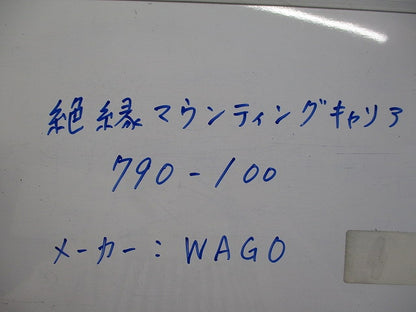 絶縁マウンティングキャリア
790-100
メーカー:WAGO